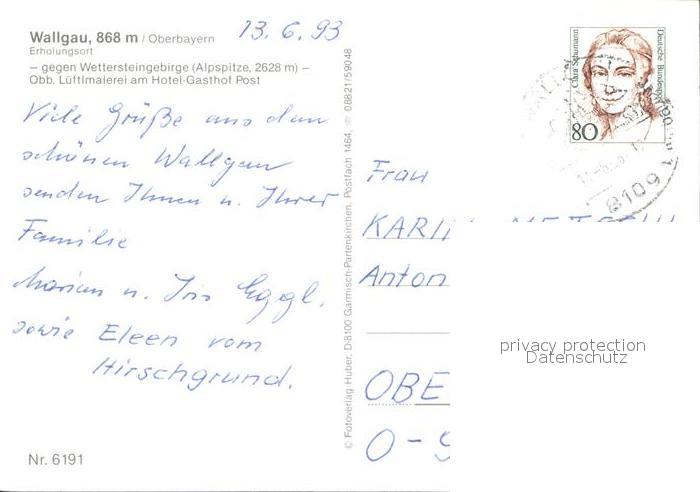 Wallgau, 868 m / Oberbayern
Erholungsort
– gegen Wettersteingebirge (Alpspitze, 2628 m) –
Obb. Lüftlmalerei am Hotel-Gasthof Post
13.6.93
Viele Grüße aus dem
schönen Wallgau
senden Ihnen u. Ihrer
Familie
Marian u. Iris Eggl.
sowie Eleen vom
Hirschgrund.
Nr. 6191
© Fotoverlag Huber, D-8100 Garmisch-Partenkirchen, Postfach 1464, ☏ 08821/59048
Clara Schumann
Deutsche Bundespost
80
8109
Frau
Anton
OBE
O-9
privacy protection
Datenschutz